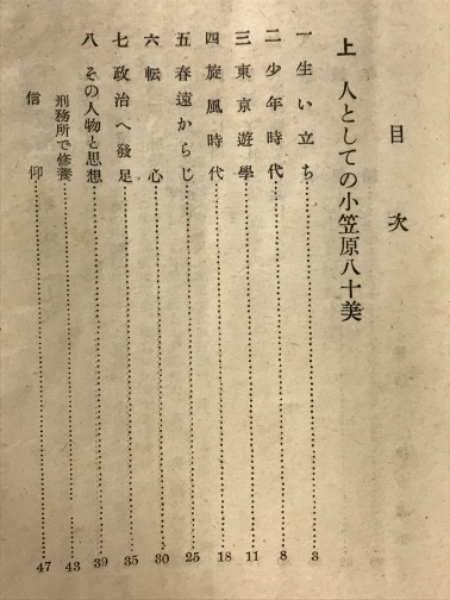 目次
上 人としての小笠原八十美
一 生い立ち……3
二 少年時代……8
三 東京遊學……11
四 旋風時代……18
五 春遠からじ……25
六 転心……30
七 政治へ發足……35
八 その人物と思想……39
刑務所で修養……43
信仰……47